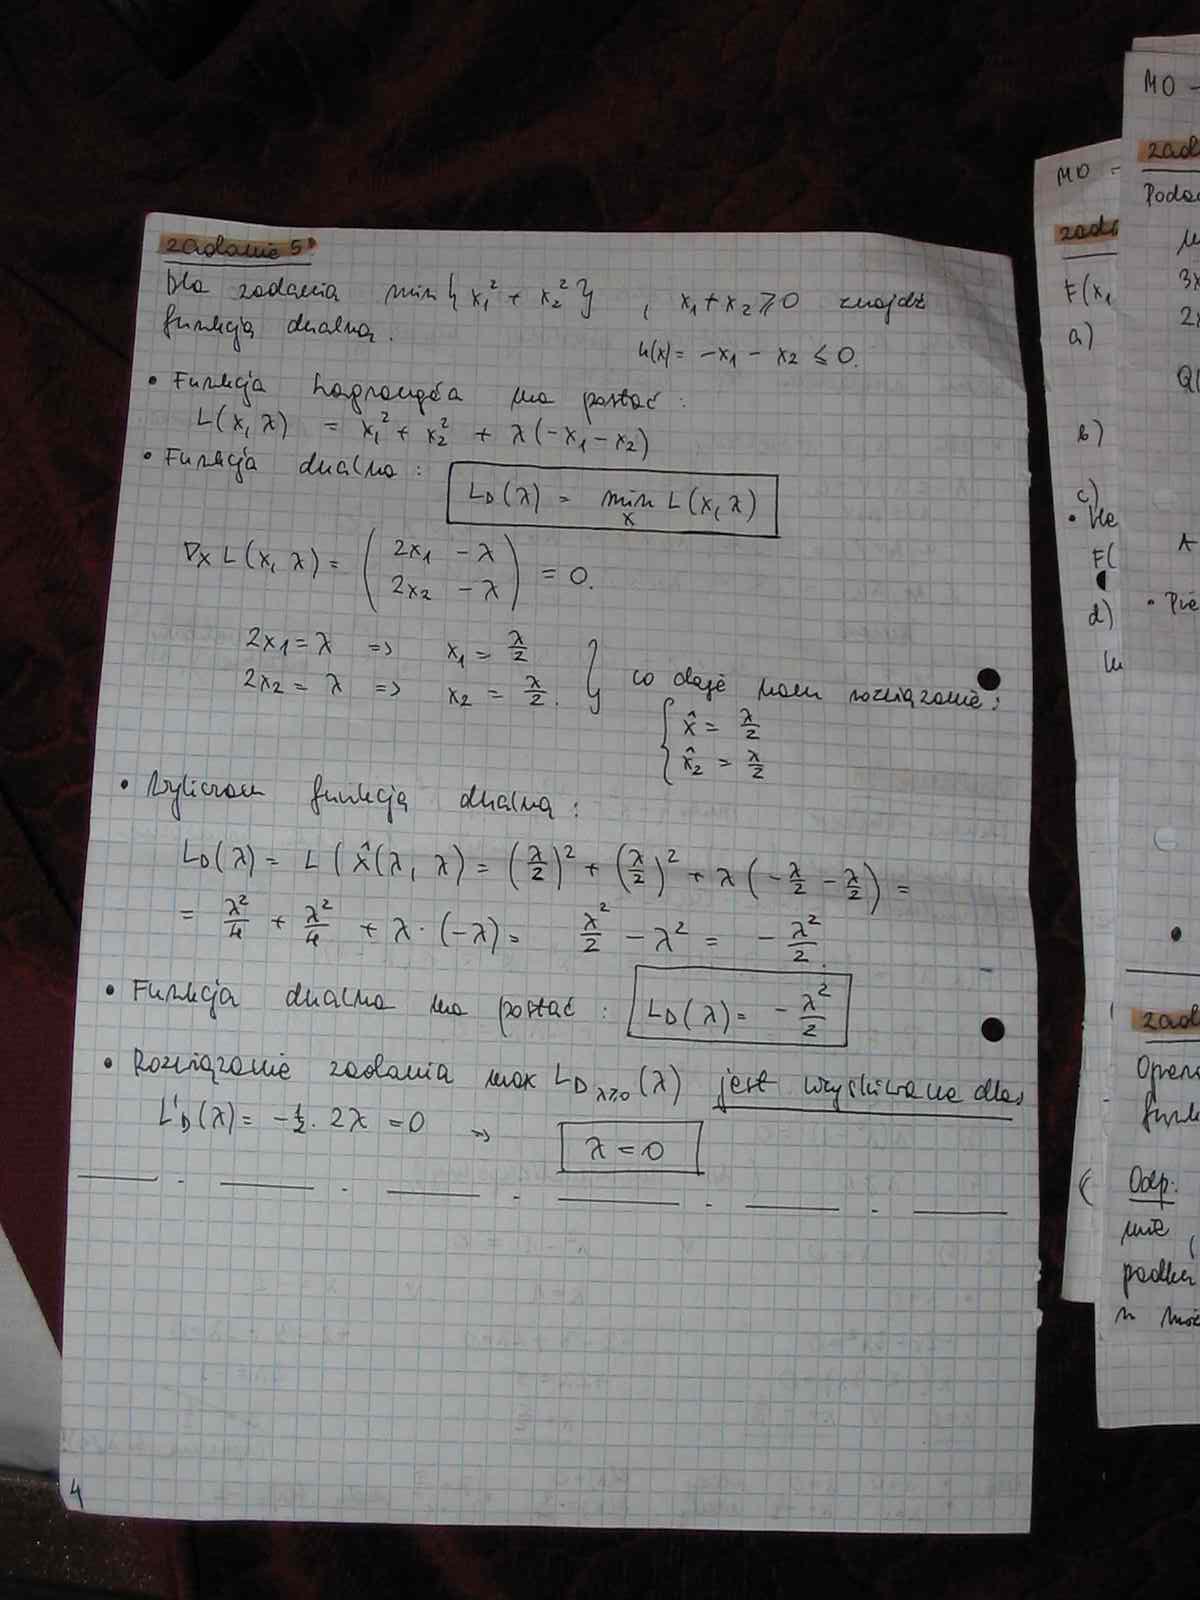 zadanie 5
Dla zadania min{x₁² + x₂²}, x₁ + x₂ ⩾ 0 znajdź
funkcją dualną.
h(x) = -x₁ - x₂ ⩽ 0.
• Funkcja Lagrange'a ma postać:
L(x, λ) = x₁² + x₂² + λ(-x₁ - x₂)
• Funkcja dualna:
L_D(λ) = min_x L(x, λ)
∇x L(x, λ) = (2x₁ - λ
2x₂ - λ) = 0.
2x₁ = λ => x₁ = λ/2
2x₂ = λ => x₂ = λ/2. } co daje nam rozwiązanie:
{ x̂ = λ/2
x̂₂ = λ/2
• Wyliczam funkcją dualną:
L_D(λ) = L(x̂(λ, λ) = (λ/2)² + (λ/2)² + λ(-λ/2 - λ/2) =
= λ²/4 + λ²/4 + λ·(-λ) = λ²/2 - λ² = -λ²/2.
• Funkcja dualna ma postać: L_D(λ) = -λ²/2
• Rozwiązanie zadania max L_D λ⩾0 (λ) jest uzyskiwane dla:
L'_D(λ) = -½·2λ = 0 => λ = 0
4
MO -
zad
Podać
3x
2x
Q(
MO =
zada
F(x₁
a)
b)
c)
F(
d)
zad
funk
Odp.